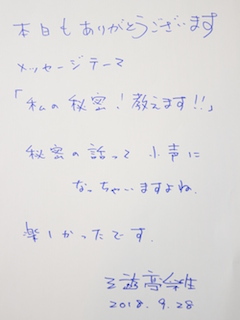 本日もありがとうございます
メッセージテーマ
「私の秘密！教えます!!」
秘密の話って 小声に
なっちゃいますよね.
楽しかったです.
2018. 9. 28